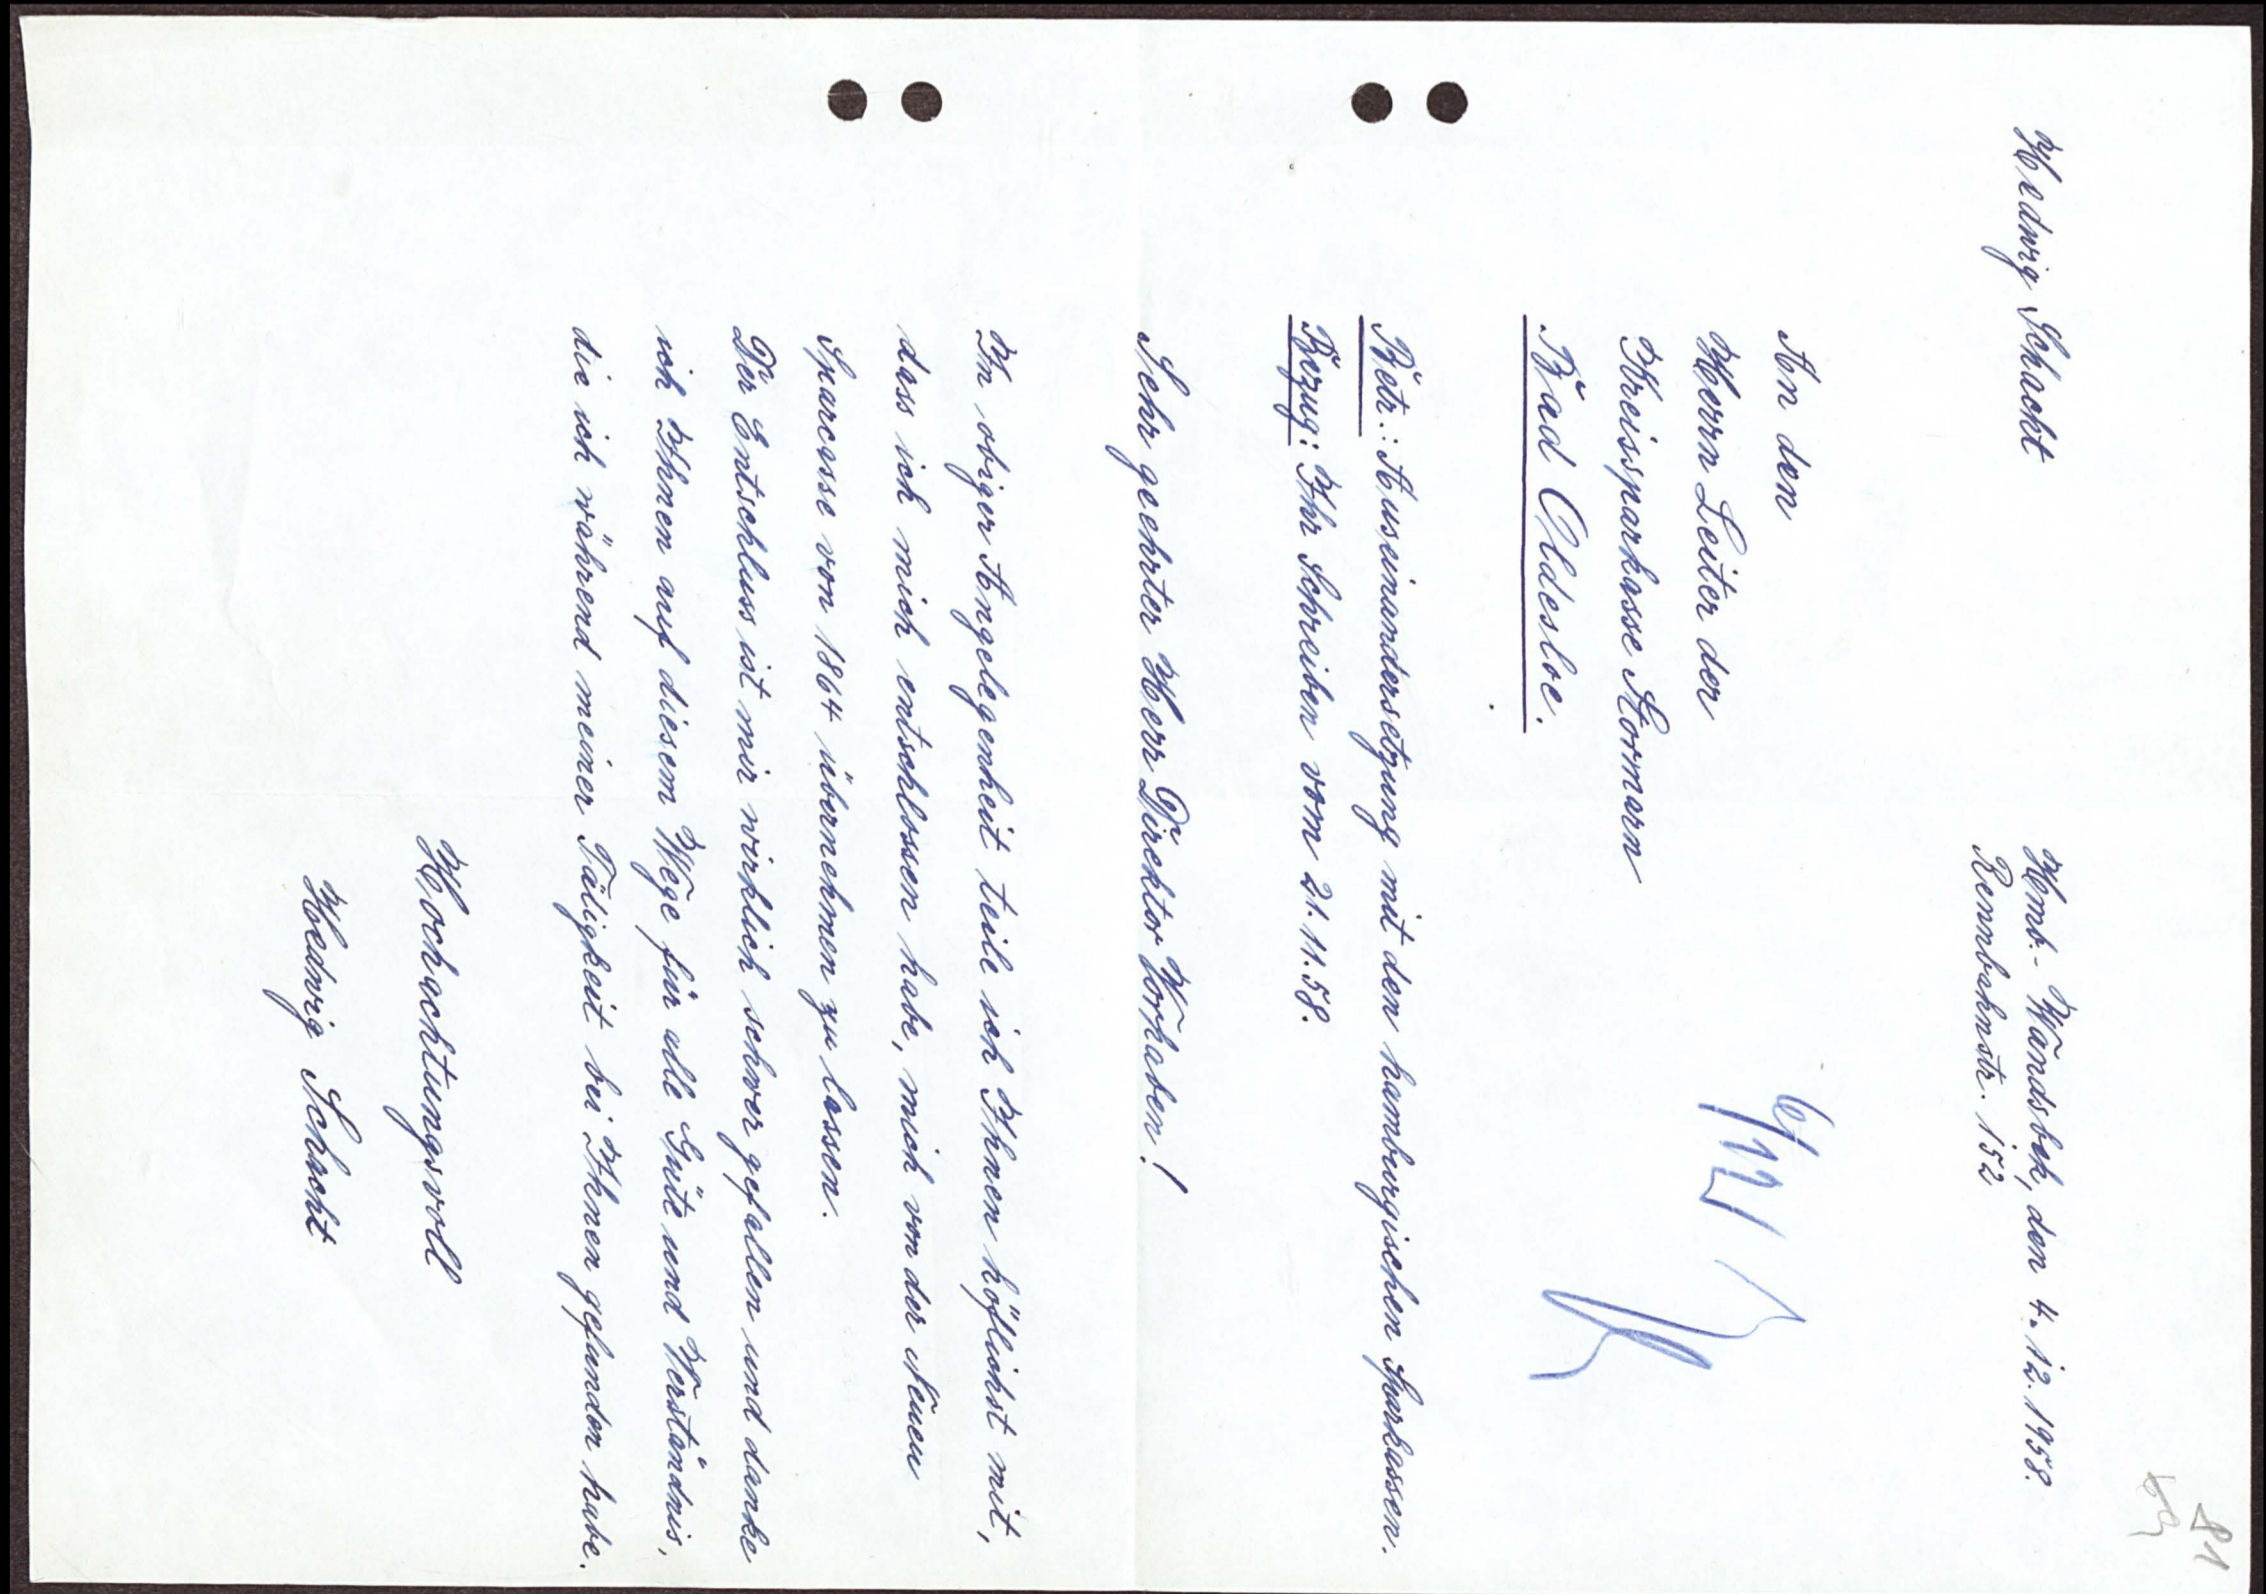 81
Hedwig Schacht
Hmb.-Wandsbek, den 4.12.1958.
Rennbahnstr. 152
An den
Herrn Leiter der
Kreissparkasse Stormarn
Bad Oldesloe.
6/12/
Betr.: Auseinandersetzung mit den hamburgischen Sparkassen.
Bezug: Ihr Schreiben vom 21.11.58.
Sehr geehrter Herr Direktor Vorhaben!
In obiger Angelegenheit teile ich Ihnen höflichst mit,
dass ich mich entschlossen habe, mich von der Neuen
Sparcasse von 1864 übernehmen zu lassen.
Der Entschluss ist mir wirklich schwer gefallen und danke
ich Ihnen auf diesem Wege für alle Güte und Verständnis,
die ich während meiner Tätigkeit bei Ihnen gefunden habe.
Hochachtungsvoll
Hedwig Schacht